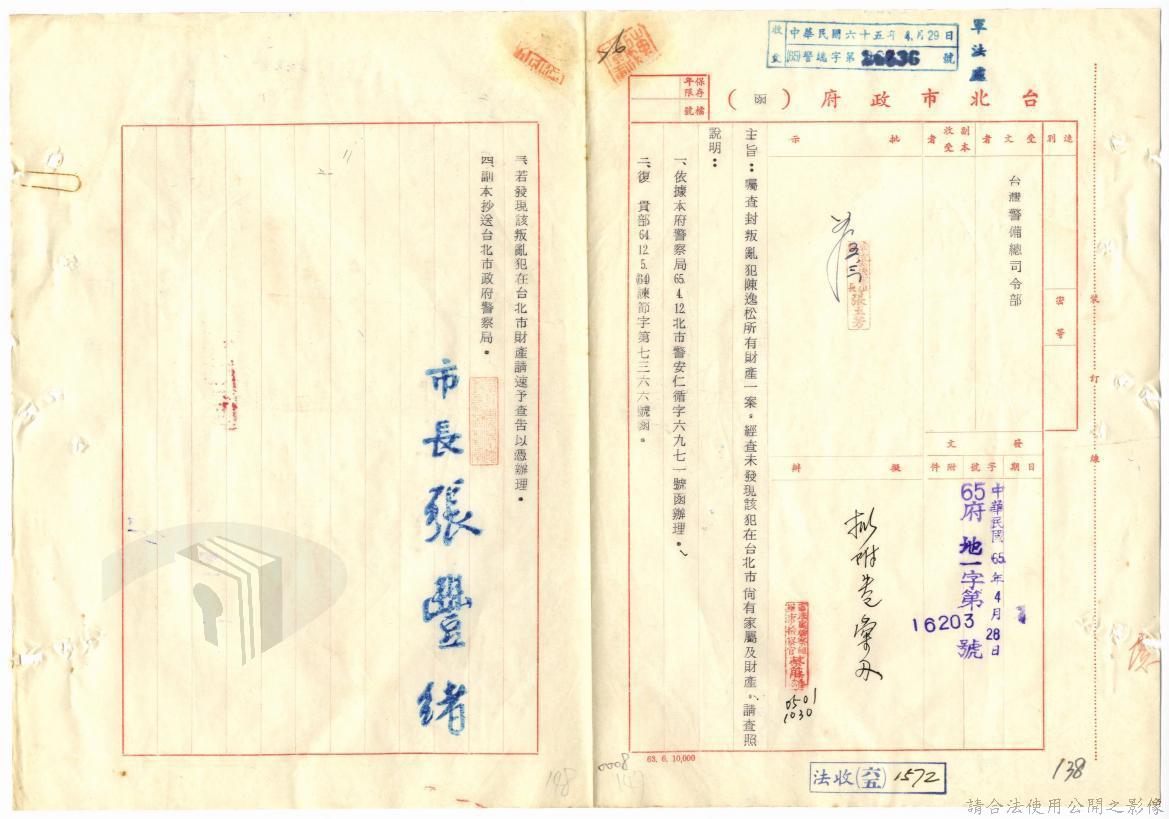 收文 中華民國六十五年4月29日
(65)警總字第26836號
軍法處
台北市政府（函）
保存年限
檔號
速別
受文者
副本收受者
批示
台灣警備總司令部
密等
發文
日期
字號
附件
中華民國65年4月28日
65府地一字第16203號
擬辦
擬附卷彙办
0501
1030
主旨：囑查封叛亂犯陳逸松所有財產一案。經查未發現該犯在台北市尚有家屬及財產。請查照
說明：
一、依據本府警察局65.4.12.北市警安仁循字六九七一號函辦理。
二、復 貴部64.12.5.(64)諫節字第七三六六號函。
三、若發現該叛亂犯在台北市財產請速予查告以憑辦理。
四、副本抄送台北市政府警察局。
市長張豐緒
裝訂線
63. 6. 10,000
法收(六五)1572
138
198
0008
56
請合法使用公開之影像